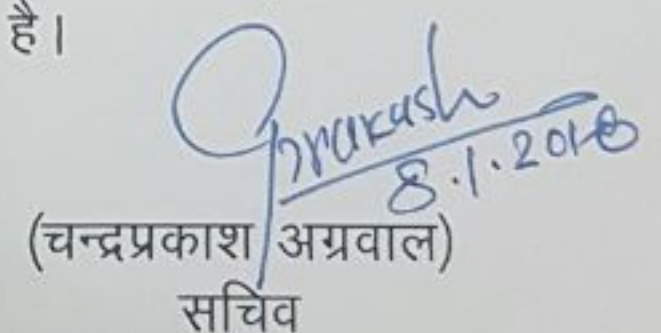 है।
Prakash
8.1.2018
(चन्द्रप्रकाश अग्रवाल)
सचिव